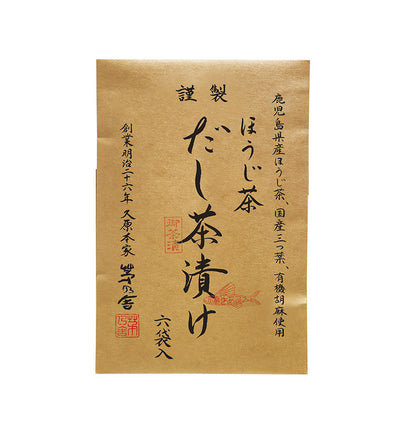 謹製
鹿児島県産ほうじ茶、国産三つ葉、有機胡麻使用
ほうじ茶
だし茶漬け
六袋入
御茶漬
創業明治二十六年 久原本家 茅乃舎